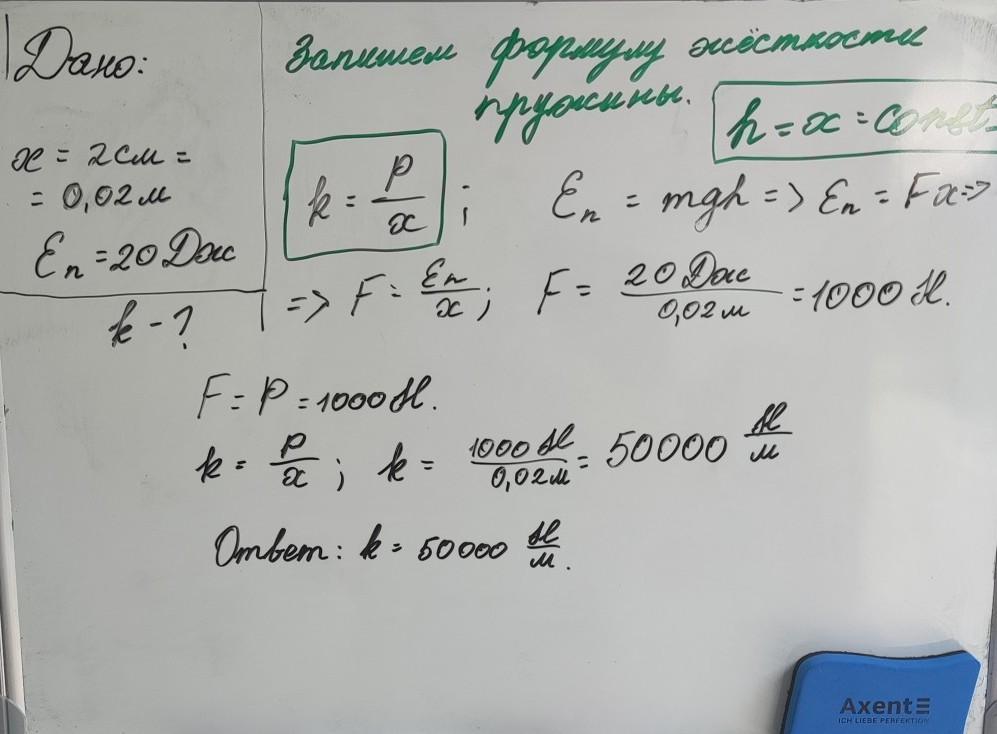 Дано:
x = 2 см =
= 0,02 м
Eп = 20 Дж
k - ?
Запишем формулу жёсткости
пружины.
h = x = const
k = P/x ; Eп = mgh => Eп = Fx =>
=> F = Eп/x ; F = 20 Дж/0,02 м = 1000 Н.
F = P = 1000 Н.
k = P/x ; k = 1000 Н/0,02 м = 50000 Н/м
Ответ: k = 50000 Н/м.
Axent
ICH LIEBE PERFEKTION